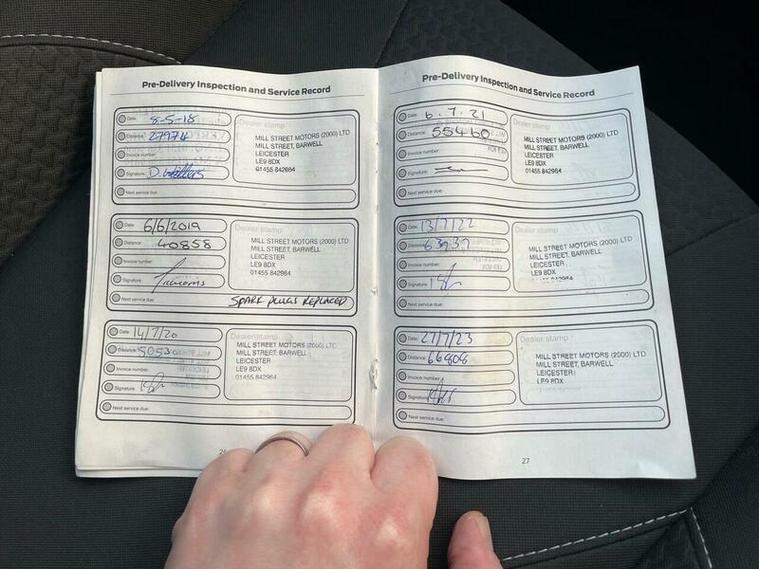 Pre-Delivery Inspection and Service Record
Date 8-5-18
Distance 27974
Invoice number
Signature
Next service due
Dealer stamp
MILL STREET MOTORS (2000) LTD
MILL STREET, BARWELL
LEICESTER
LE9 8DX
01455 842964
Date 6/6/2019
Distance 40858
Invoice number
Signature
Next service due SPARK PLUGS REPLACED
Dealer stamp
MILL STREET MOTORS (2000) LTD
MILL STREET, BARWELL
LEICESTER
LE9 8DX
01455 842964
Date 14/7/20
Distance
Invoice number
Signature
Next service due
Dealer stamp
MILL STREET MOTORS (2000) LTD
MILL STREET, BARWELL
LEICESTER
LE9 8DX
01455 842964
Pre-Delivery Inspection and Service Record
Date 6.7.21
Distance 55460
Invoice number
Signature
Next service due
Dealer stamp
MILL STREET MOTORS (2000) LTD
MILL STREET, BARWELL
LEICESTER
LE9 8DX
01455 842964
Date 13/7/22
Distance 63937
Invoice number
Signature
Next service due
Dealer stamp
MILL STREET MOTORS (2000) LTD
MILL STREET, BARWELL
LEICESTER
LE9 8DX
01455 842964
Date 27/7/23
Distance 66808
Invoice number
Signature
Next service due
Dealer stamp
MILL STREET MOTORS (2000) LTD
MILL STREET, BARWELL
LEICESTER
LE9 8DX
27